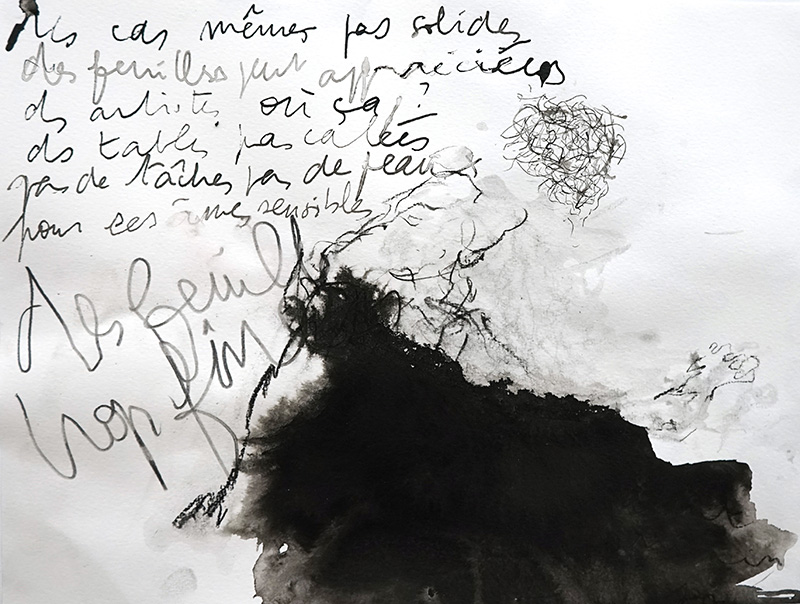 des cas mêmes pas solides
des feuilles peut
des artistes où ça ?
des tables pas calées
pas de tâches pas de
pour ces âmes sensibles
des feuill
trop fin